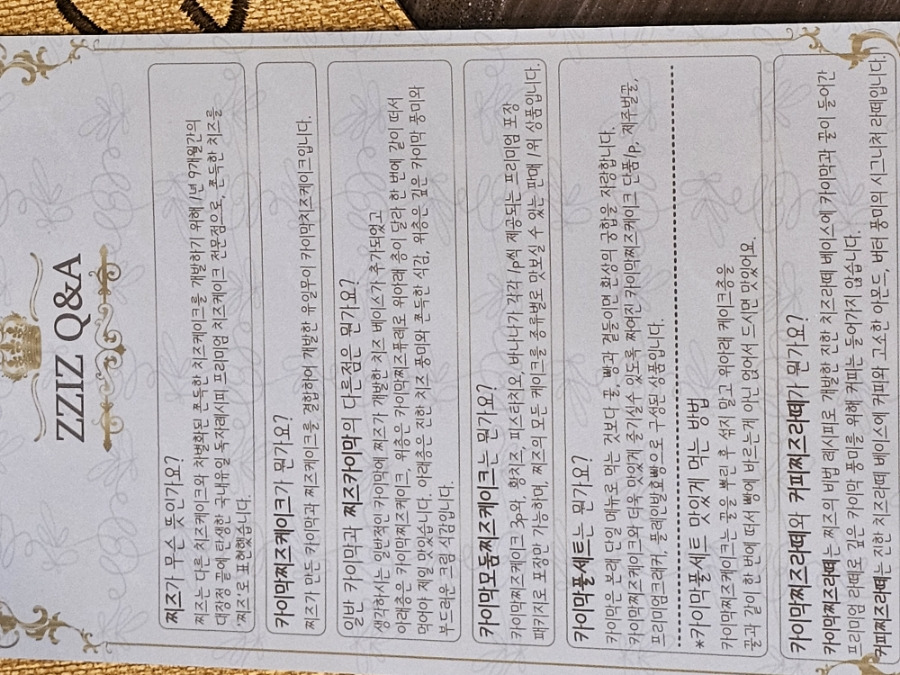 ZZIZ Q&A
찌즈가 무슨 뜻이기요?
찌즈는 다른 치즈케이크와 차별화된 쫀득한 치즈케이크를 개발하기 위해 1년 9개월간의
대장정 끝에 탄생한 국내유일 독자레시피 프리미엄 치즈케이크 전문점으로, 쫀득한 치즈를
'찌즈'로 표현했습니다.
카이막찌즈케이크가 뭔가요?
찌즈가 만든 카이막과 찌즈케이크를 결합하여 개발한 유일무이 카이막치즈케이크입니다.
일반 카이막과 찌즈카이막의 다른점은 뭔가요?
생각하시는 일반적인 카이막에 찌즈가 개발한 치즈 베이스가 추가되었고
아래층은 카이막찌즈케이크, 위층은 카이막찌즈퓨레로 위아래 층이 달라 한 번에 같이 떠서
먹어야 제일 맛있습니다. 아래층은 진한 치즈 풍미와 쫀득한 식감, 위층은 깊은 카이막 풍미와
부드러운 크림 식감입니다.
카이막모둠찌즈케이크는 뭔가요?
카이막찌즈케이크 3p와, 황치즈, 피스타치오, 바나나가 각각 1p씩 제공되는 프리미엄 포장
패키지로 포장만 가능하며, 찌즈의 모든 케이크를 종류별로 맛보실 수 있는 판매 1위 상품입니다.
카이막풀세트는 뭔가요?
카이막은 본래 단일 메뉴로 먹는 것보다 꿀, 빵과 곁들이면 환상의 궁합을 자랑합니다.
카이막찌즈케이크와 더욱 맛있게 즐기실수 있도록 짜여진 카이막찌즈케이크 단품1p, 제주벌꿀,
프리미엄크래커, 플레인발효빵으로 구성된 상품입니다.
*카이막풀세트 맛있게 먹는 방법
카이막찌즈케이크는 꿀을 뿌린 후 섞지 말고 위아래 케이크층을
꿀과 같이 한 번에 떠서 빵에 바르는게 아닌 얹어서 드시면 맛있어요.
카이막찌즈라떼와 커피찌즈라떼가 뭔가요?
카이막찌즈라떼는 찌즈의 비법 레시피로 개발한 진한 치즈라떼 베이스에 카이막과 꿀이 들어간
프리미엄 라떼로 깊은 카이막 풍미를 위해 커피는 들어가지 않습니다.
커피찌즈라떼는 진한 치즈라떼 베이스에 커피와 고소한 아몬드, 버터 풍미의 시그니처 라떼입니다.